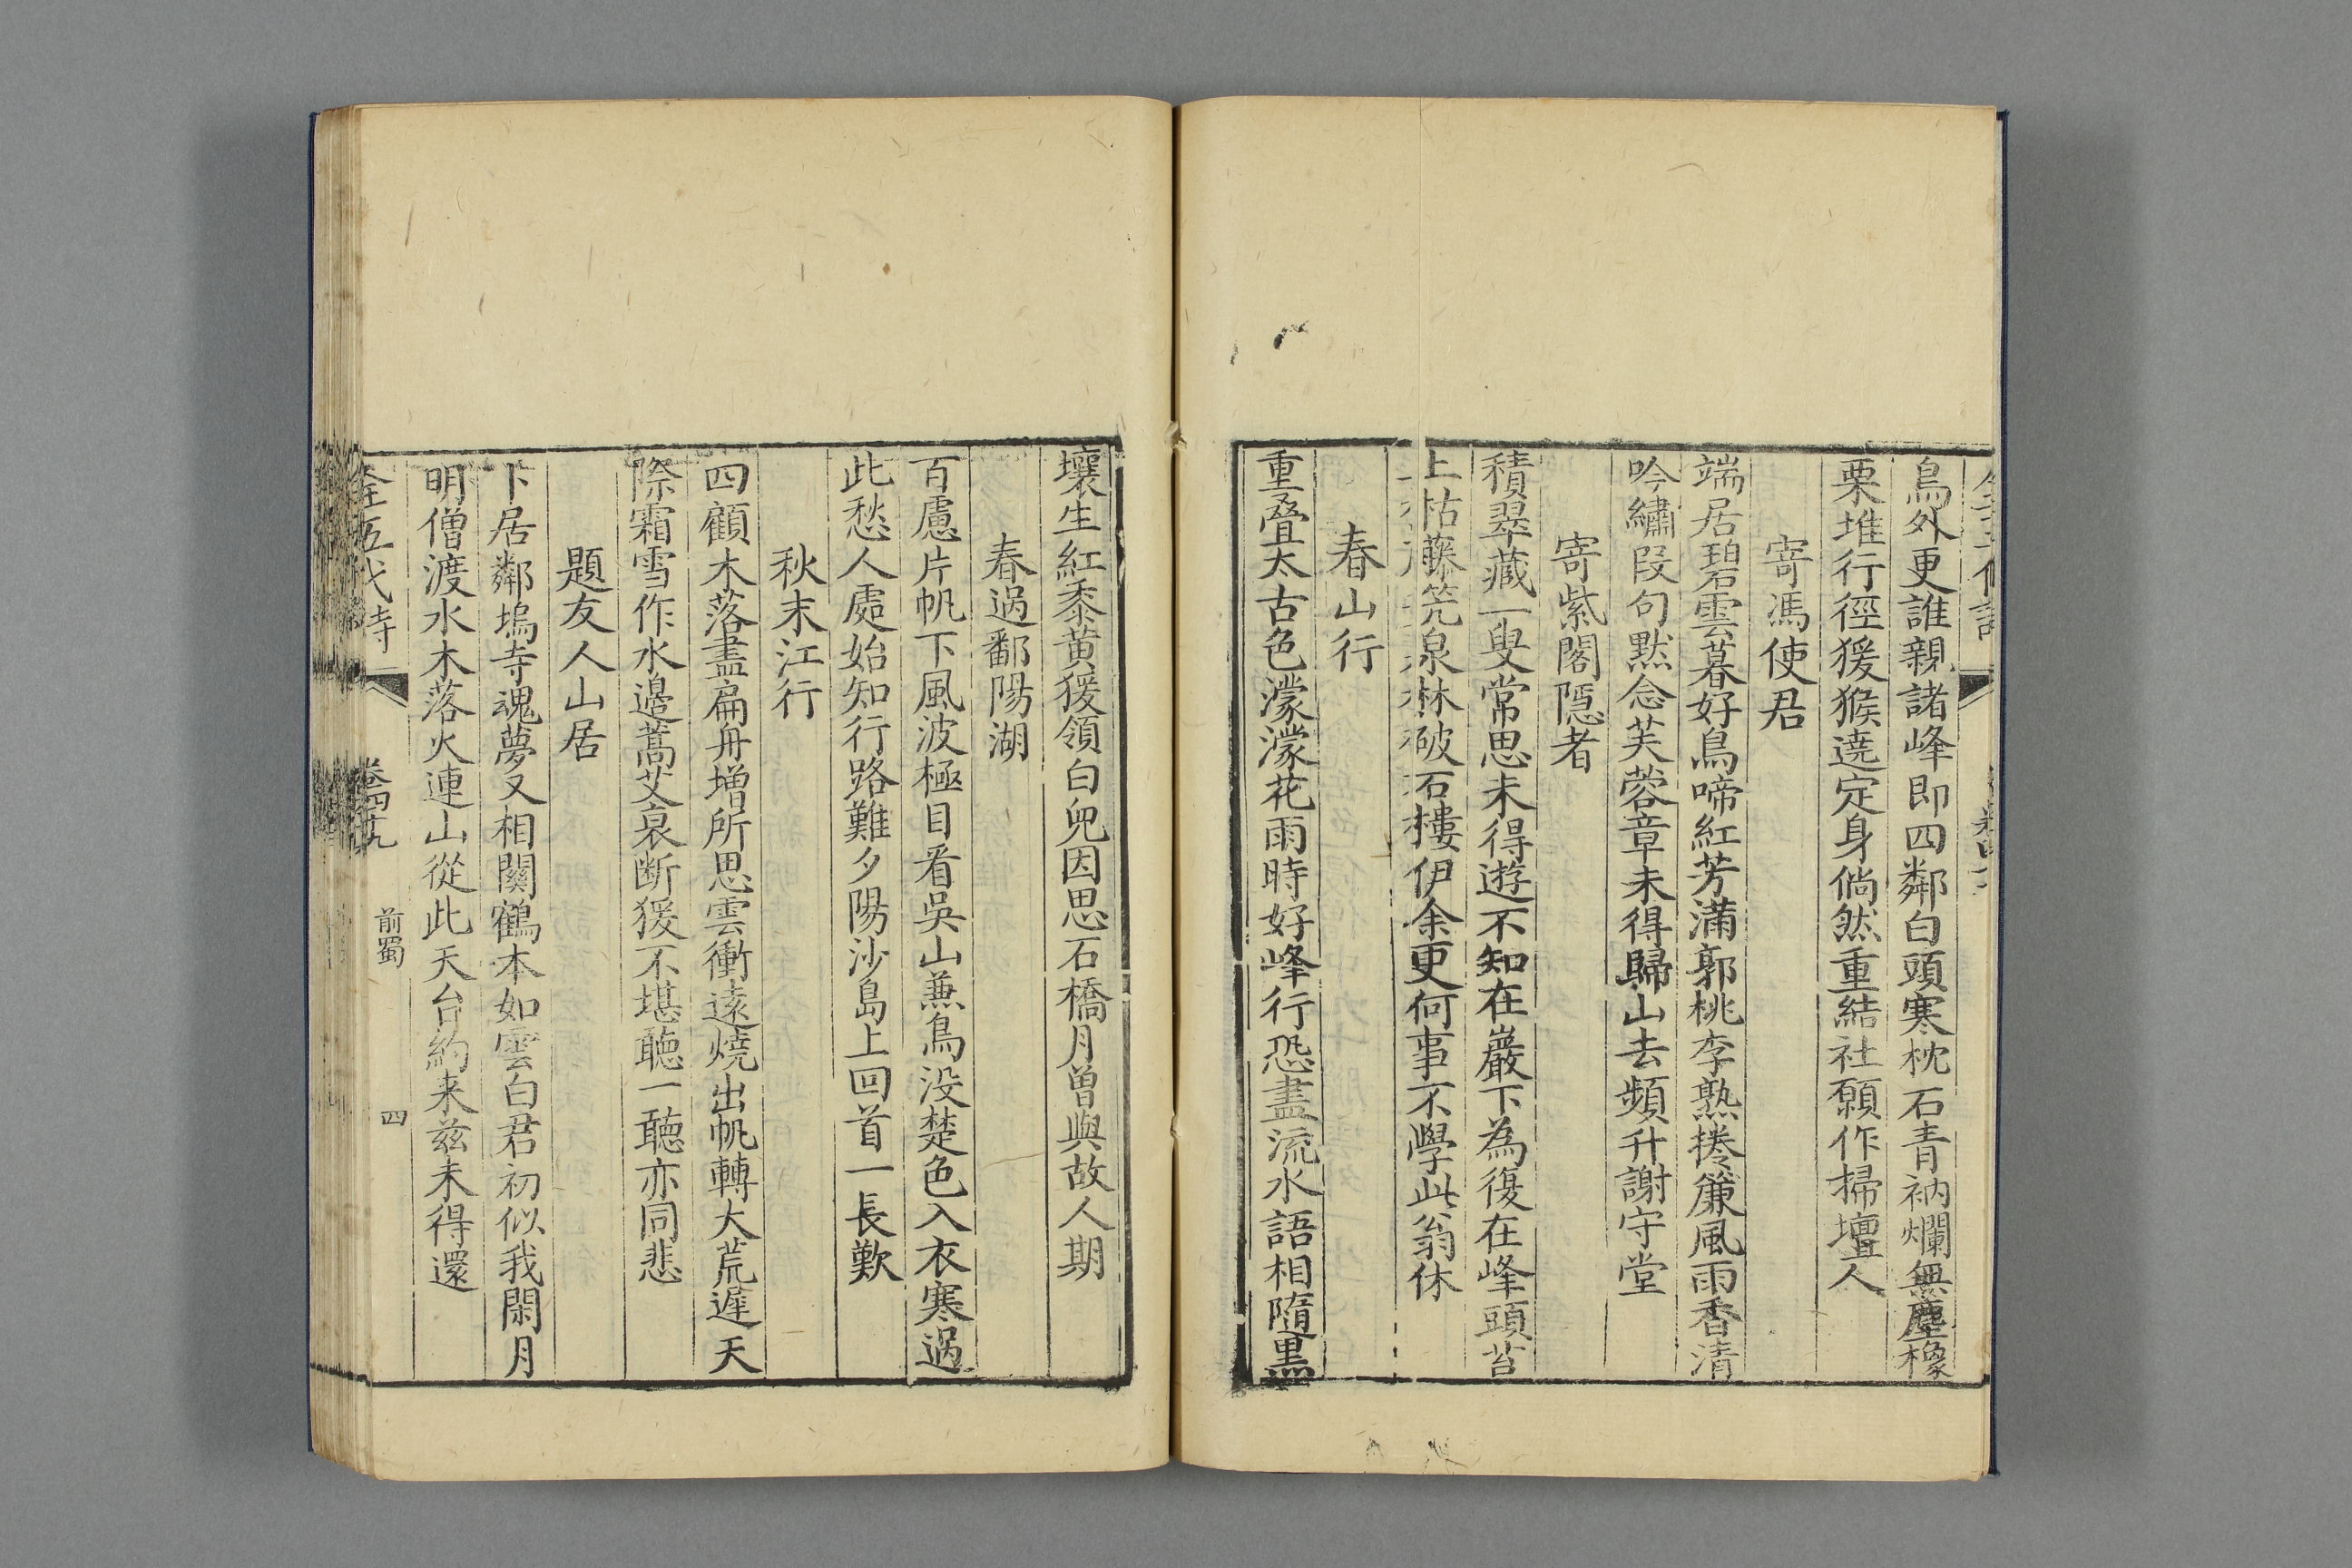 鳥外更誰親諸峰即四鄰白頭寒枕石青衲爛無塵橡
栗堆行徑猨猴遶定身倘然重結社願作掃壇人
寄馮使君
端居碧雲暮好鳥啼紅芳滿郭桃李熟捲簾風雨香清
吟繡段句默念芙蓉章未得歸山去頻升謝守堂
寄紫閣隱者
積翠藏一叟常思未得遊不知在巖下為復在峰頭苔
上枯藤笐泉淋破石樓伊余更何事不學此翁休
春山行
重疊太古色濛濛花雨時好峰行恐盡流水語相隨黑
壤生紅黍黃猨領白兒因思石橋月曾與故人期
春過鄱陽湖
百慮片帆下風波極目看吳山兼鳥沒楚色入衣寒過
此愁人處始知行路難夕陽沙島上回首一長歎
秋末江行
四顧木落盡扁舟增所思雲衝遠燒出帆轉大荒遲天
際霜雪作水邊蒿艾衰斷猨不堪聽一聽亦同悲
題友人山居
卜居鄰塢寺魂夢又相關鶴本如雲白君初似我閑月
明僧渡水木落火連山從此天台約來茲未得還
全五代詩 卷四十九 前蜀 四